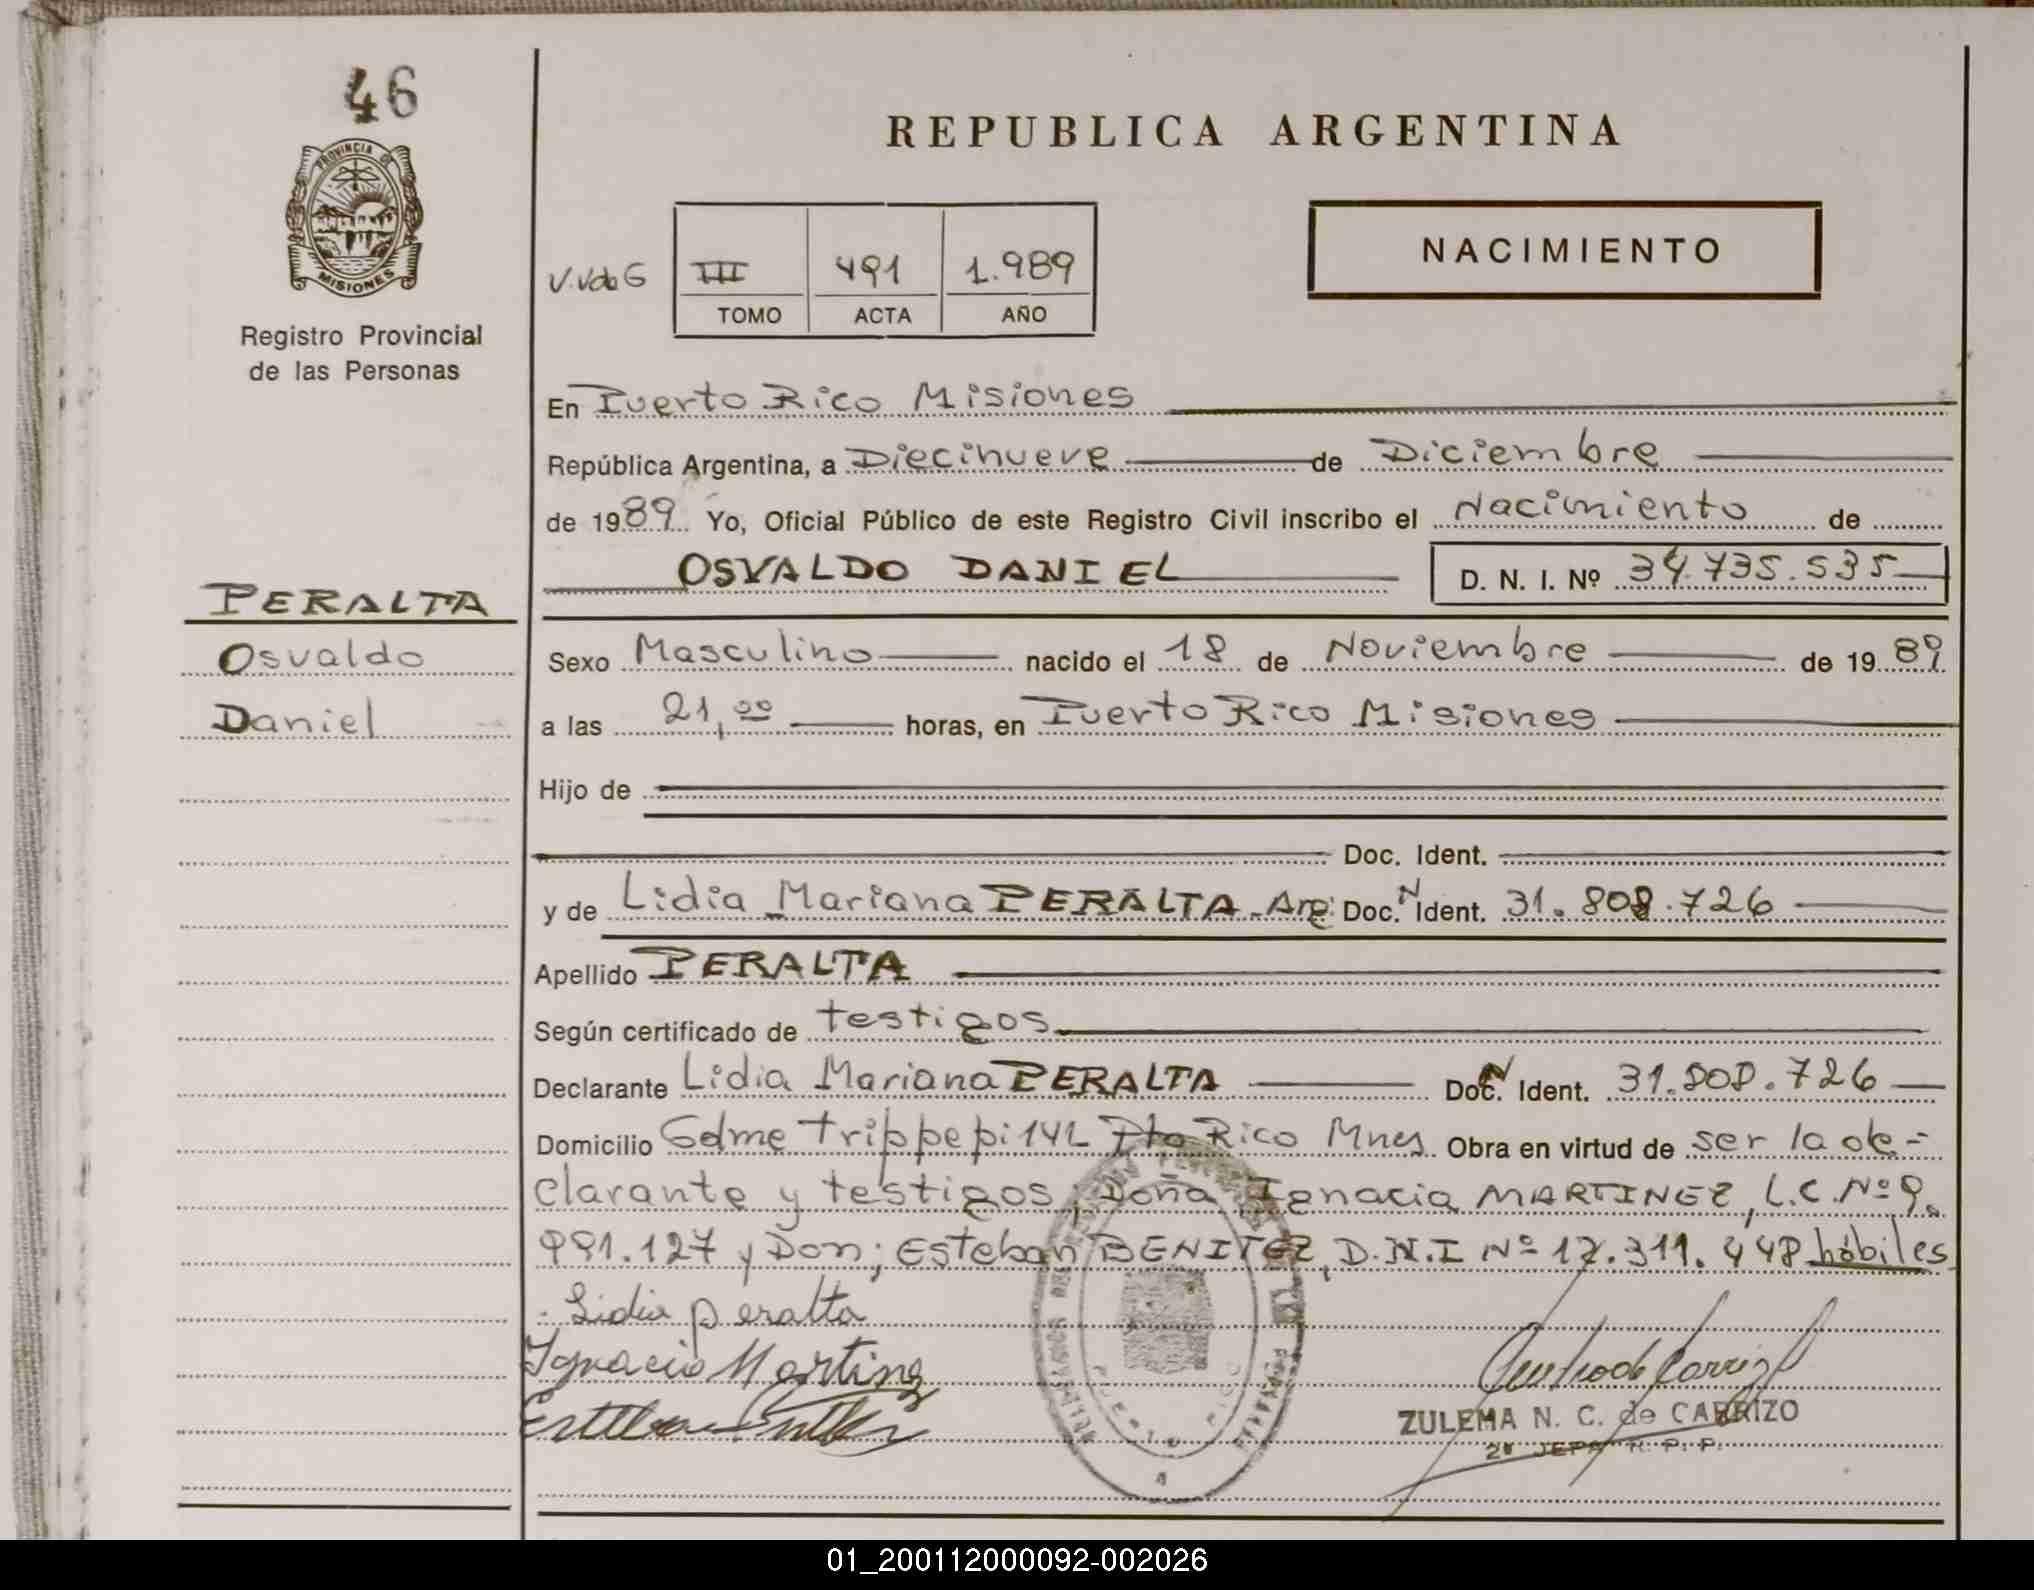 46
PROVINCIA DE
MISIONES
Registro Provincial
de las Personas
PERALTA
Osvaldo
Daniel
REPUBLICA ARGENTINA
NACIMIENTO
III 491 1.989
TOMO ACTA AÑO
En Puerto Rico Misiones
República Argentina, a Diecinueve de Diciembre
de 1989 Yo, Oficial Público de este Registro Civil inscribo el Nacimiento de
OSVALDO DANIEL D. N. I. Nº 34.735.535
Sexo Masculino nacido el 18 de Noviembre de 1989
a las 21,00 horas, en Puerto Rico Misiones
Hijo de
Doc. Ident.
y de Lidia Mariana PERALTA-Arg. Doc. N Ident. 31.808.726
Apellido PERALTA
Según certificado de testigos
Declarante Lidia Mariana PERALTA Doc. N Ident. 31.808.726
Domicilio Gdme Trippepi 142 Pto Rico Mnes Obra en virtud de ser la de-
clarante y testigos; Doña Ignacia MARTINEZ, L.C. Nº 9.
991.127 y Don; Esteban BENITEZ, D.N.I Nº 17.311.448 hábiles
Lidia peralta
Ignacia Martinez
ZULEMA N. C. de CARRIZO
2º JEFA R. P. P.
PUERTO RICO
01_200112000092-002026